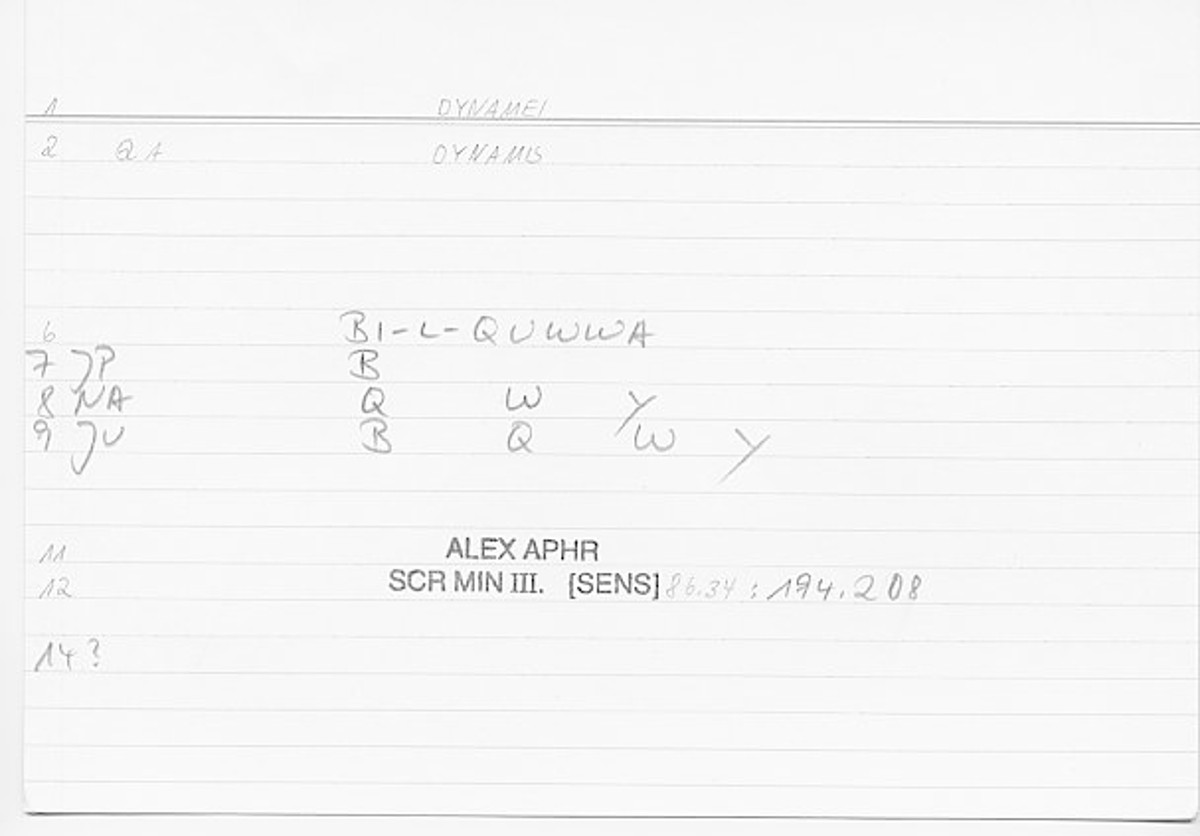 1 DYNAMEI
2 QA DYNAMIS
6 BI-L-QUWWA
7 JP B
8 NA Q W Y
9 JU B Q W Y
11 ALEX APHR
12 SCR MIN III. [SENS] 86.34 : 194.208
14?